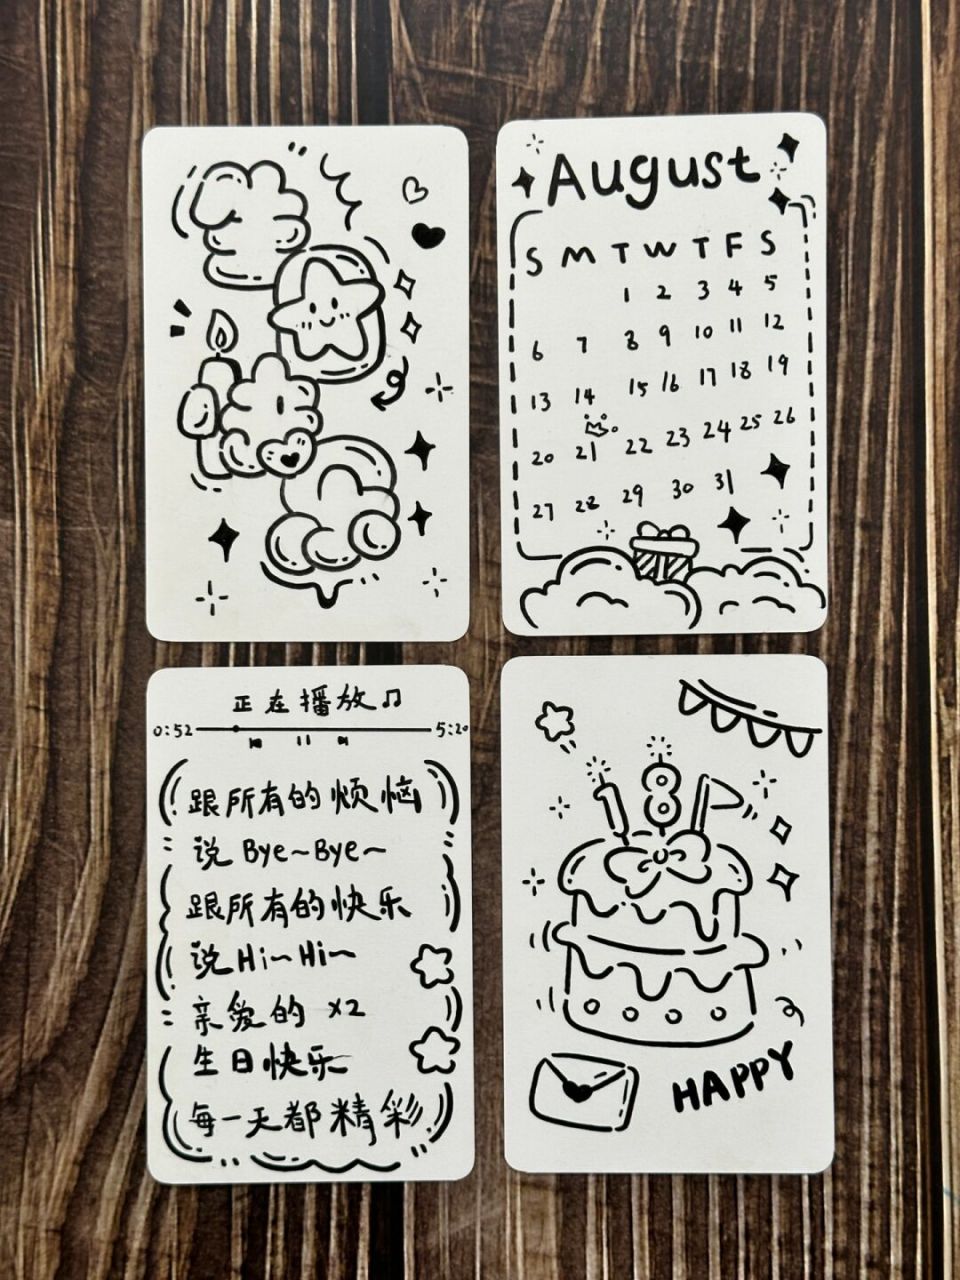 August
S M T W T F S
1 2 3 4 5
6 7 8 9 10 11 12
13 14 15 16 17 18 19
20 21 22 23 24 25 26
27 28 29 30 31
正在播放♫
0:52 5:20
跟所有的烦恼
说 Bye~Bye~
跟所有的快乐
说 Hi~Hi~
亲爱的 x2
生日快乐
每一天都精彩
8
HAPPY